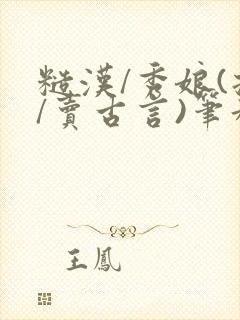 糙漢/秀娘(
/賣古言)筆
王鳳